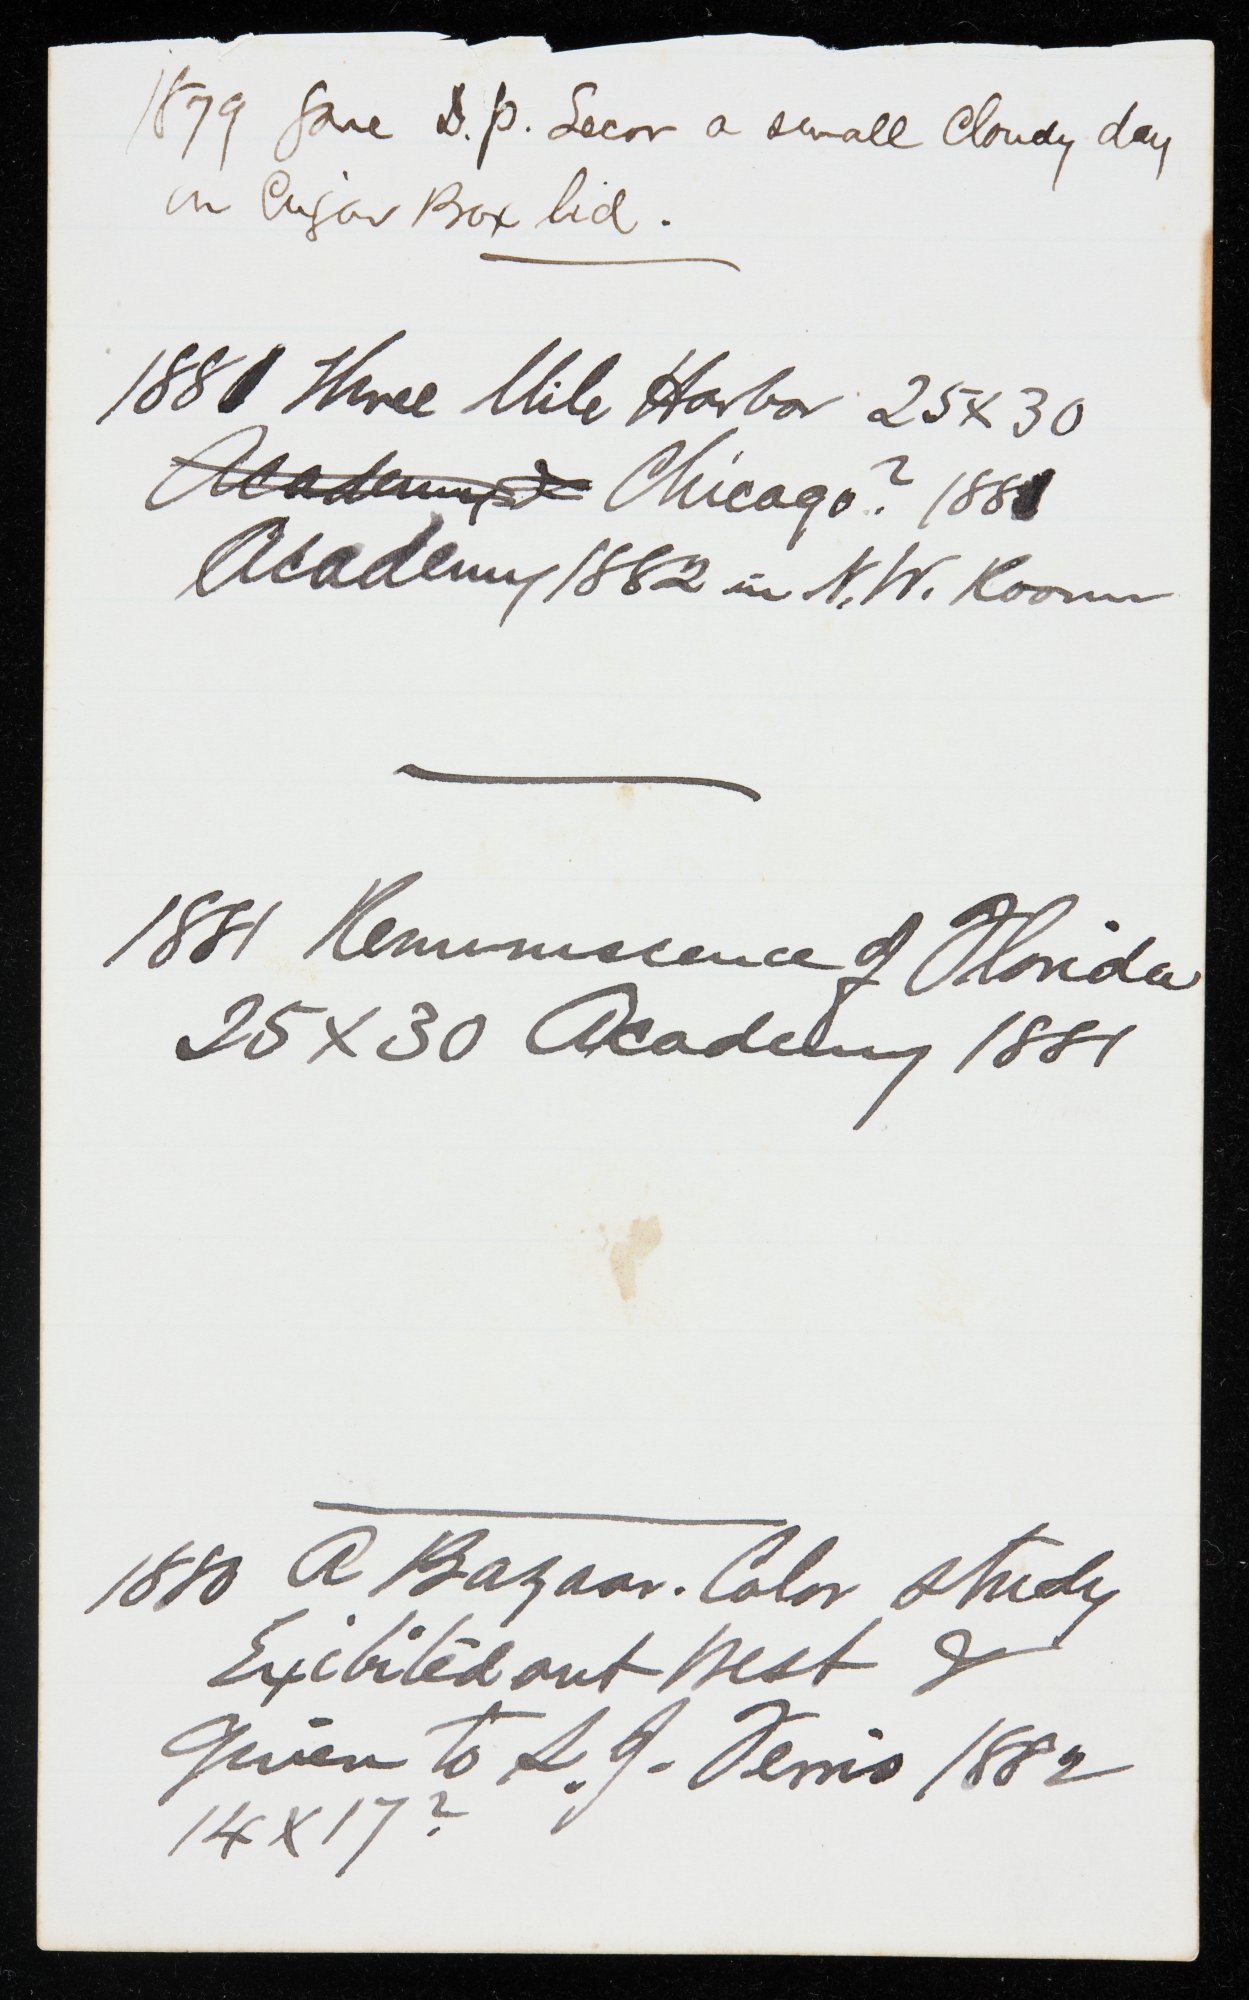 1879 gave D. P. Secor a small Cloudy day
on Cugar Box lid.
1881 Three Mile Harbor 25 x 30
Academy & Chicago? 1881
Academy 1882 in N. W. Room
1881 Reminiscence of Florida
25 x 30 Academy 1881
1880 A Bazaar. Color study
Exibited out West &
given to S. J. Ferris 1882
14 x 17?